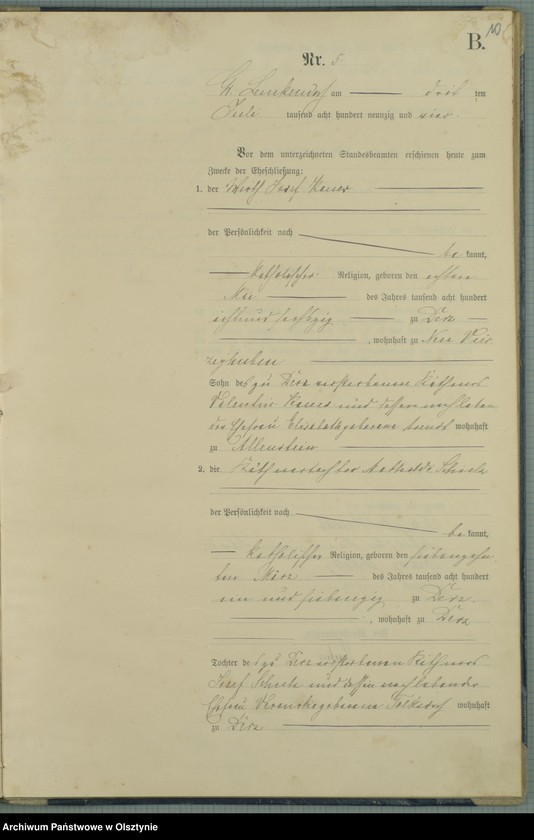 B.
Nr. 5
am drit ten
Juli tausend acht hundert neunzig und vier.
Vor dem unterzeichneten Standesbeamten erschienen heute zum
Zwecke der Eheschließung:
1. der Josef
der Persönlichkeit nach
be kannt,
katholischer Religion, geboren den
Mai des Jahres tausend acht hundert
achtundsechzig zu Derz
, wohnhaft zu Neu Vier
zighuben
Sohn des zu Derz verstorbenen Käthners
Valentin und dessen nachleben
den Ehefrau Elisabeth geborene wohnhaft
zu Allenstein
2. die Käthnertochter Mathilde
der Persönlichkeit nach
be kannt,
katholischer Religion, geboren den siebenzehn
ten März des Jahres tausend acht hundert
ein und siebenzig zu Derz
, wohnhaft zu Derz
Tochter des zu Derz verstorbenen Käthners
Josef und dessen nachlebender
Ehefrau geborene wohnhaft
zu Derz
Archiwum Państwowe w Olsztynie